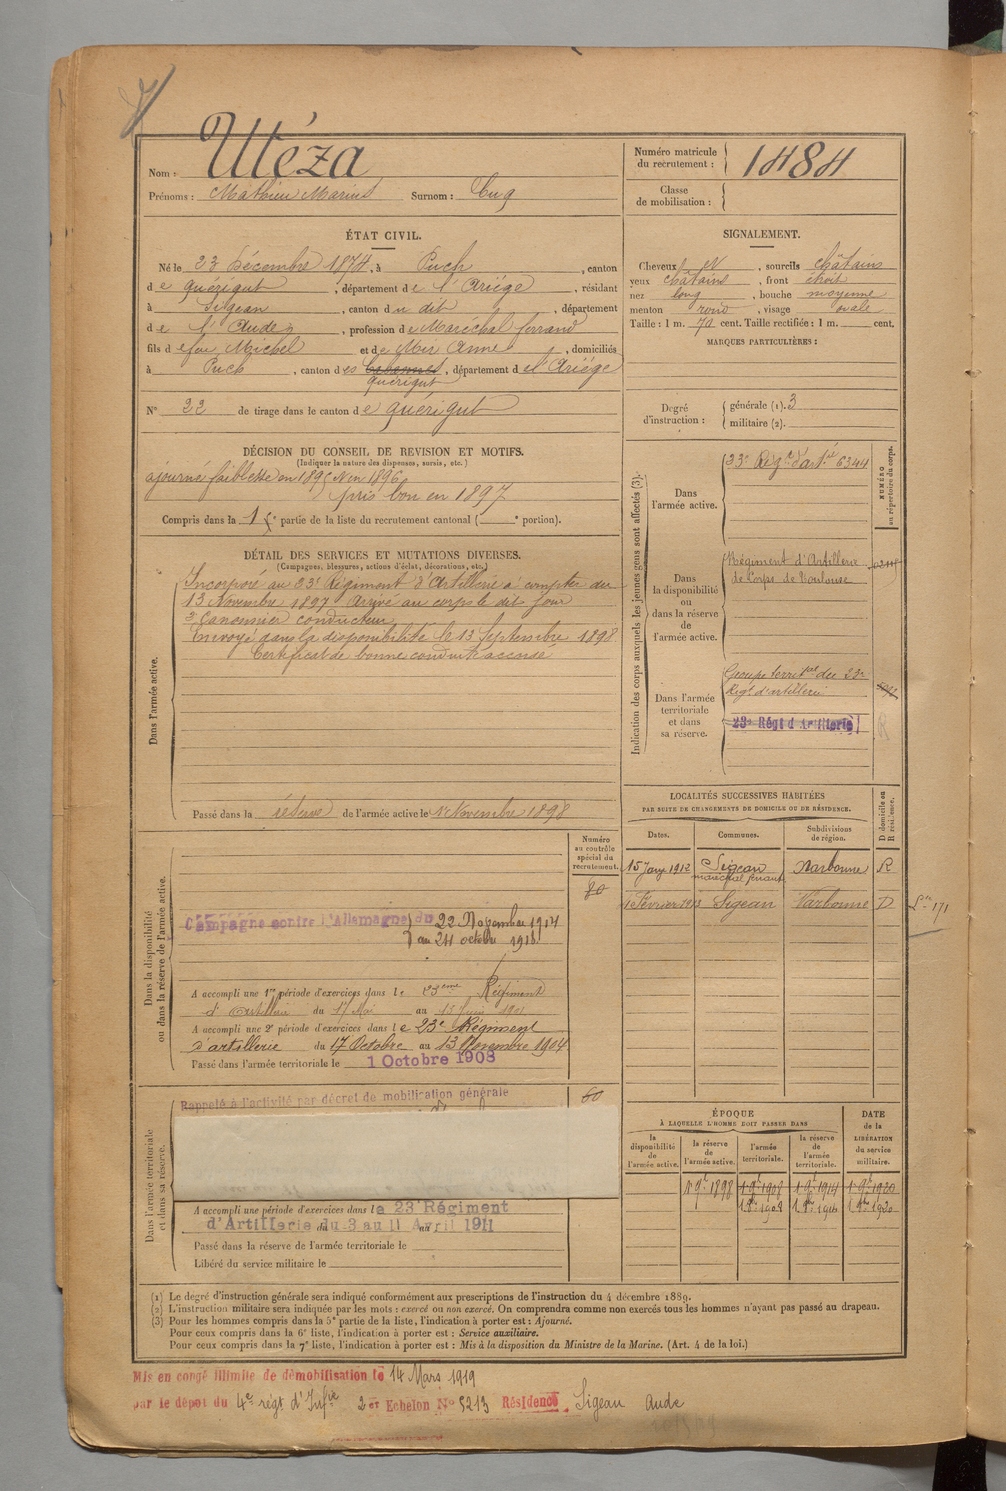 Nom : Utéza
Prénoms : Mathieu Marius Surnom : Cug
Numéro matricule du recrutement : 1484
Classe de mobilisation :
ÉTAT CIVIL.
Né le 23 Décembre 1874, à Puch, canton
de quérigut, département de l'Ariége, résidant
à Sigean, canton du dit, département
de l'Aude, profession de Maréchal ferrand
fils de feu Michel et de Mir Anne, domiciliés
à Puch, canton des quérigut, département de l'Ariége
N° 22 de tirage dans le canton de quérigut
SIGNALEMENT.
Cheveux N, sourcils châtains
yeux châtains, front étroit
nez long, bouche moyenne
menton rond, visage ovale
Taille : 1 m. 70 cent. Taille rectifiée : 1 m. cent.
MARQUES PARTICULIÈRES :
Degré d'instruction : générale (1). 3
militaire (2).
DÉCISION DU CONSEIL DE REVISION ET MOTIFS.
(Indiquer la nature des dispenses, sursis, etc.)
ajourné faiblesse en 1895 et en 1896
pris bon en 1897
Compris dans la 1e partie de la liste du recrutement cantonal ( e portion).
DÉTAIL DES SERVICES ET MUTATIONS DIVERSES.
(Campagnes, blessures, actions d'éclat, décorations, etc.)
Dans l'armée active.
Incorporé au 23e Régiment d'Artillerie à compter du
13 Novembre 1897 Arrivé au corps le dit jour
2e Canonnier conducteur
Envoyé dans la disponibilité le 13 Septembre 1898
Certificat de bonne conduite accordé
Passé dans la réserve de l'armée active le 1er Novembre 1898
Indication des corps auxquels les jeunes gens sont affectés (3).
NUMÉRO au répertoire du corps.
Dans l'armée active.
23e Régt d'artie 6344
Dans la disponibilité ou dans la réserve de l'armée active.
Régiment d'Artillerie
de Corps de Toulouse
Dans l'armée territoriale et dans sa réserve.
Groupe territal du 23e
Régt d'artillerie
23e Régt d'Artillerie R
LOCALITÉS SUCCESSIVES HABITÉES
PAR SUITE DE CHANGEMENTS DE DOMICILE OU DE RÉSIDENCE.
Dates. Communes. Subdivisions de région. D domicile ou R résidence.
15 Janv 1912 Sigean maréchal ferrant Narbonne R
Février Sigean Narbonne D
Numéro au contrôle spécial du recrutement.
80
Dans la disponibilité ou dans la réserve de l'armée active.
Campagne contre l'Allemagne du 22 Novembre 1914
au 24 octobre 1918
A accompli une 1re période d'exercices dans le 23ème Régiment
d'Artillerie du 17 Mai au 13 Juin 1901
A accompli une 2e période d'exercices dans le 23e Régiment
d'artillerie du 17 Octobre au 13 Novembre 1904
Passé dans l'armée territoriale le 1 Octobre 1908
Dans l'armée territoriale et dans sa réserve.
Rappelé à l'activité par décret de mobilisation générale
60
A accompli une période d'exercices dans le 23e Régiment
d'Artillerie du 3 au 11 Avril 1911
Passé dans la réserve de l'armée territoriale le
Libéré du service militaire le
ÉPOQUE
À LAQUELLE L'HOMME DOIT PASSER DANS
la disponibilité de l'armée active. la réserve de l'armée active. l'armée territoriale. la réserve de l'armée territoriale.
DATE de la LIBÉRATION du service militaire.
1 9bre 1898 1 9bre 1908 1 9bre 1914 1 9bre 1920
1 8bre 1908 1 8bre 1914 1 8bre 1920
(1) Le degré d'instruction générale sera indiqué conformément aux prescriptions de l'instruction du 4 décembre 1889.
(2) L'instruction militaire sera indiquée par les mots : exercé ou non exercé. On comprendra comme non exercés tous les hommes n'ayant pas passé au drapeau.
(3) Pour les hommes compris dans la 5e partie de la liste, l'indication à porter est : Ajourné.
Pour ceux compris dans la 6e liste, l'indication à porter est : Service auxiliaire.
Pour ceux compris dans la 7e liste, l'indication à porter est : Mis à la disposition du Ministre de la Marine. (Art. 4 de la loi.)
Mis en congé illimité de démobilisation le 14 Mars 1919
par le dépôt du 4e régt d'Infie 2er Echelon N° 5213 Résidence Sigean Aude